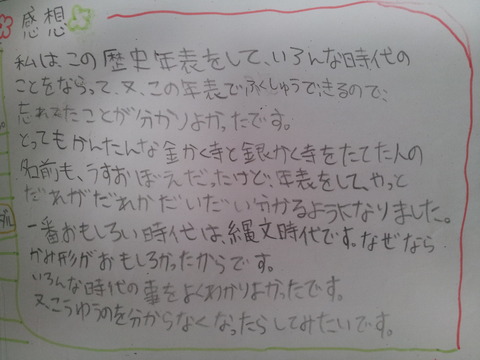 感想
私は、この歴史年表をして、いろんな時代の
ことをならって、又、この年表でふくしゅうできるので、
忘れてたことが分かりよかったです。
とってもかんたんな金かく寺と銀かく寺をたてた人の
名前も、うすおぼえだったけど、年表をして、やっと
だれがだれかだいだい分かるようになりました。
一番おもしろい時代は、縄文時代です。なぜなら
かみ形がおもしろかったからです。
いろんな時代の事をよくわかりよかったです。
又、こうゆうのを分からなくなったらしてみたいです。